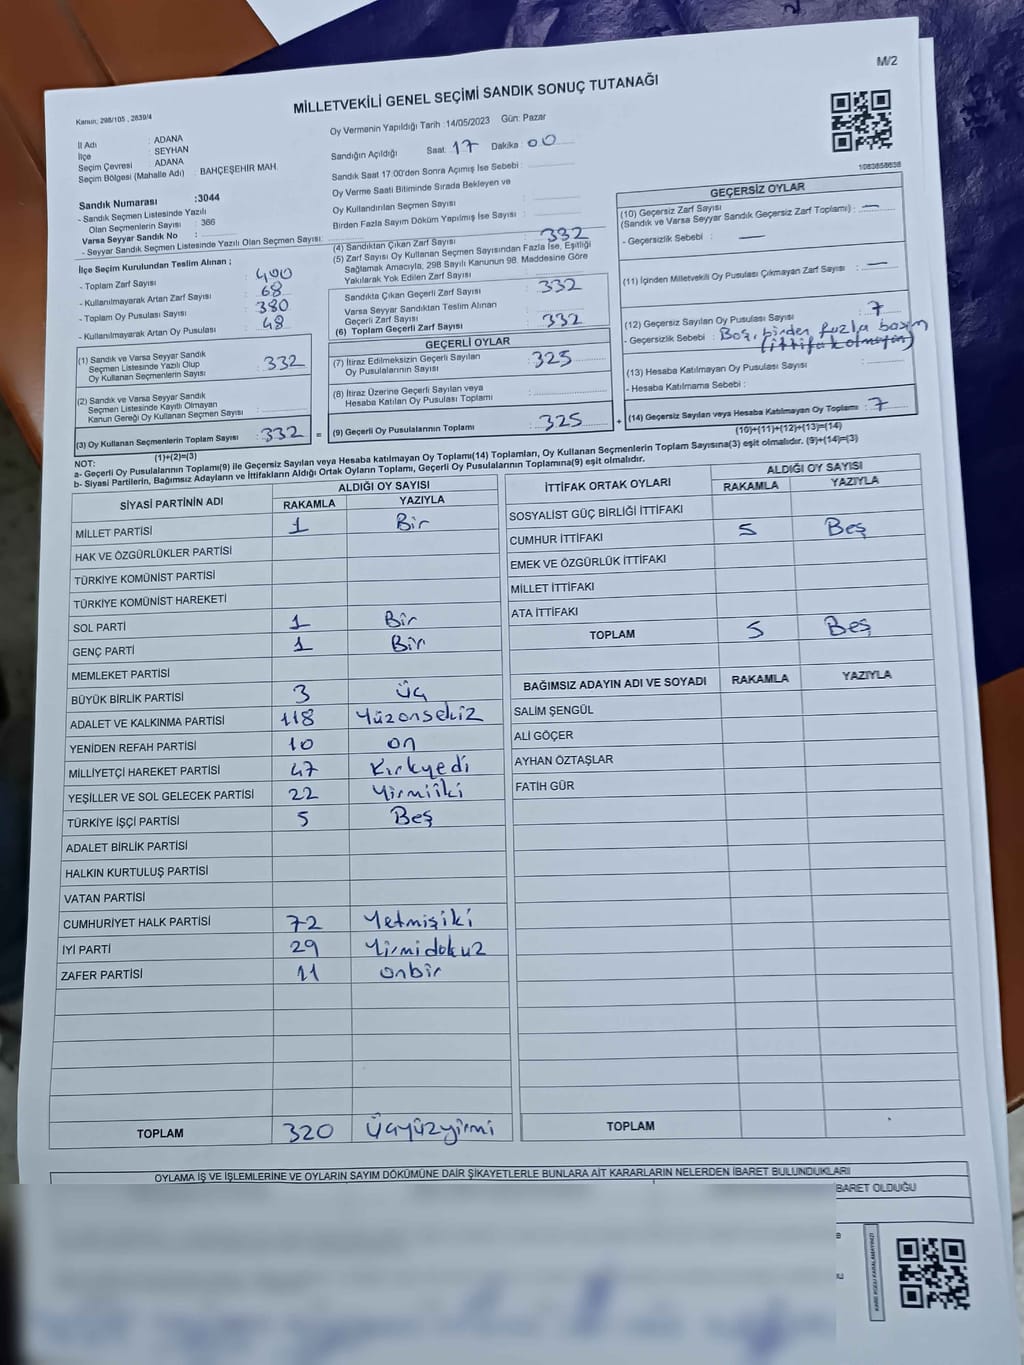 M/2
MİLLETVEKİLİ GENEL SEÇİMİ SANDIK SONUÇ TUTANAĞI
Kanun: 298/105 , 2839/4
İl Adı : ADANA
İlçe : SEYHAN
Seçim Çevresi : ADANA
Seçim Bölgesi (Mahalle Adı) : BAHÇEŞEHİR MAH.
Sandık Numarası :3044
- Sandık Seçmen Listesinde Yazılı
Olan Seçmenlerin Sayısı : 366
Varsa Seyyar Sandık No :
- Seyyar Sandık Seçmen Listesinde Yazılı Olan Seçmen Sayısı:
Oy Vermenin Yapıldığı Tarih :14/05/2023 Gün: Pazar
Sandığın Açıldığı Saat: 17 Dakika: 00
Sandık Saat 17.00'den Sonra Açımış İse Sebebi :
Oy Verme Saati Bitiminde Sırada Bekleyen ve
Oy Kullandırılan Seçmen Sayısı :
Birden Fazla Sayım Döküm Yapılmış İse Sayısı :
1083858638
İlçe Seçim Kurulundan Teslim Alınan ;
- Toplam Zarf Sayısı : 400
- Kullanılmayarak Artan Zarf Sayısı : 68
- Toplam Oy Pusulası Sayısı : 380
- Kullanılmayarak Artan Oy Pusulası : 48
(1) Sandık ve Varsa Seyyar Sandık
Seçmen Listesinde Yazılı Olup
Oy Kullanan Seçmenlerin Sayısı : 332
(2) Sandık ve Varsa Seyyar Sandık
Seçmen Listesinde Kayıtlı Olmayan
Kanun Gereği Oy Kullanan Seçmen Sayısı :
(3) Oy Kullanan Seçmenlerin Toplam Sayısı : 332
(1)+(2)=(3)
(4) Sandıktan Çıkan Zarf Sayısı : 332
(5) Zarf Sayısı Oy Kullanan Seçmen Sayısından Fazla İse, Eşitliği
Sağlamak Amacıyla, 298 Sayılı Kanunun 98. Maddesine Göre
Yakılarak Yok Edilen Zarf Sayısı :
Sandıkta Çıkan Geçerli Zarf Sayısı : 332
Varsa Seyyar Sandıktan Teslim Alınan
Geçerli Zarf Sayısı :
(6) Toplam Geçerli Zarf Sayısı : 332
GEÇERLİ OYLAR
(7) İtiraz Edilmeksizin Geçerli Sayılan
Oy Pusulalarının Sayısı : 325
(8) İtiraz Üzerine Geçerli Sayılan veya
Hesaba Katılan Oy Pusulası Toplamı :
= (9) Geçerli Oy Pusulalarının Toplamı : 325
GEÇERSİZ OYLAR
(10) Geçersiz Zarf Sayısı
(Sandık ve Varsa Seyyar Sandık Geçersiz Zarf Toplamı) : —
- Geçersizlik Sebebi : —
(11) İçinden Milletvekili Oy Pusulası Çıkmayan Zarf Sayısı : —
(12) Geçersiz Sayılan Oy Pusulası Sayısı : 7
- Geçersizlik Sebebi : Boş, birden fazla basım
(ittifak olmayan)
(13) Hesaba Katılmayan Oy Pusulası Sayısı :
- Hesaba Katılmama Sebebi :
+ (14) Geçersiz Sayılan veya Hesaba Katılmayan Oy Toplamı : 7
(10)+(11)+(12)+(13)=(14)
NOT:
a- Geçerli Oy Pusulalarının Toplamı(9) ile Geçersiz Sayılan veya Hesaba katılmayan Oy Toplamı(14) Toplamları, Oy Kullanan Seçmenlerin Toplam Sayısına(3) eşit olmalıdır. (9)+(14)=(3)
b- Siyasi Partilerin, Bağımsız Adayların ve İttifakların Aldığı Ortak Oyların Toplamı, Geçerli Oy Pusulalarının Toplamına(9) eşit olmalıdır.
SİYASİ PARTİNİN ADI ALDIĞI OY SAYISI
RAKAMLA YAZIYLA
MİLLET PARTİSİ 1 Bir
HAK VE ÖZGÜRLÜKLER PARTİSİ
TÜRKİYE KOMÜNİST PARTİSİ
TÜRKİYE KOMÜNİST HAREKETİ
SOL PARTİ 1 Bir
GENÇ PARTİ 1 Bir
MEMLEKET PARTİSİ
BÜYÜK BİRLİK PARTİSİ 3 Üç
ADALET VE KALKINMA PARTİSİ 118 Yüzonsekiz
YENİDEN REFAH PARTİSİ 10 on
MİLLİYETÇİ HAREKET PARTİSİ 47 Kırkyedi
YEŞİLLER VE SOL GELECEK PARTİSİ 22 Yirmiiki
TÜRKİYE İŞÇİ PARTİSİ 5 Beş
ADALET BİRLİK PARTİSİ
HALKIN KURTULUŞ PARTİSİ
VATAN PARTİSİ
CUMHURİYET HALK PARTİSİ 72 Yetmişiki
İYİ PARTİ 29 Yirmidokuz
ZAFER PARTİSİ 11 onbir
TOPLAM 320 Üçyüzyirmi
İTTİFAK ORTAK OYLARI ALDIĞI OY SAYISI
RAKAMLA YAZIYLA
SOSYALİST GÜÇ BİRLİĞİ İTTİFAKI
CUMHUR İTTİFAKI 5 Beş
EMEK VE ÖZGÜRLÜK İTTİFAKI
MİLLET İTTİFAKI
ATA İTTİFAKI
TOPLAM 5 Beş
BAĞIMSIZ ADAYIN ADI VE SOYADI RAKAMLA YAZIYLA
SALİM ŞENGÜL
ALİ GÖÇER
AYHAN ÖZTAŞLAR
FATİH GÜR
TOPLAM
OYLAMA İŞ VE İŞLEMLERİNE VE OYLARIN SAYIM DÖKÜMÜNE DAİR ŞİKAYETLERLE BUNLARA AİT KARARLARIN NELERDEN İBARET BULUNDUKLARI
İBARET OLDUĞU